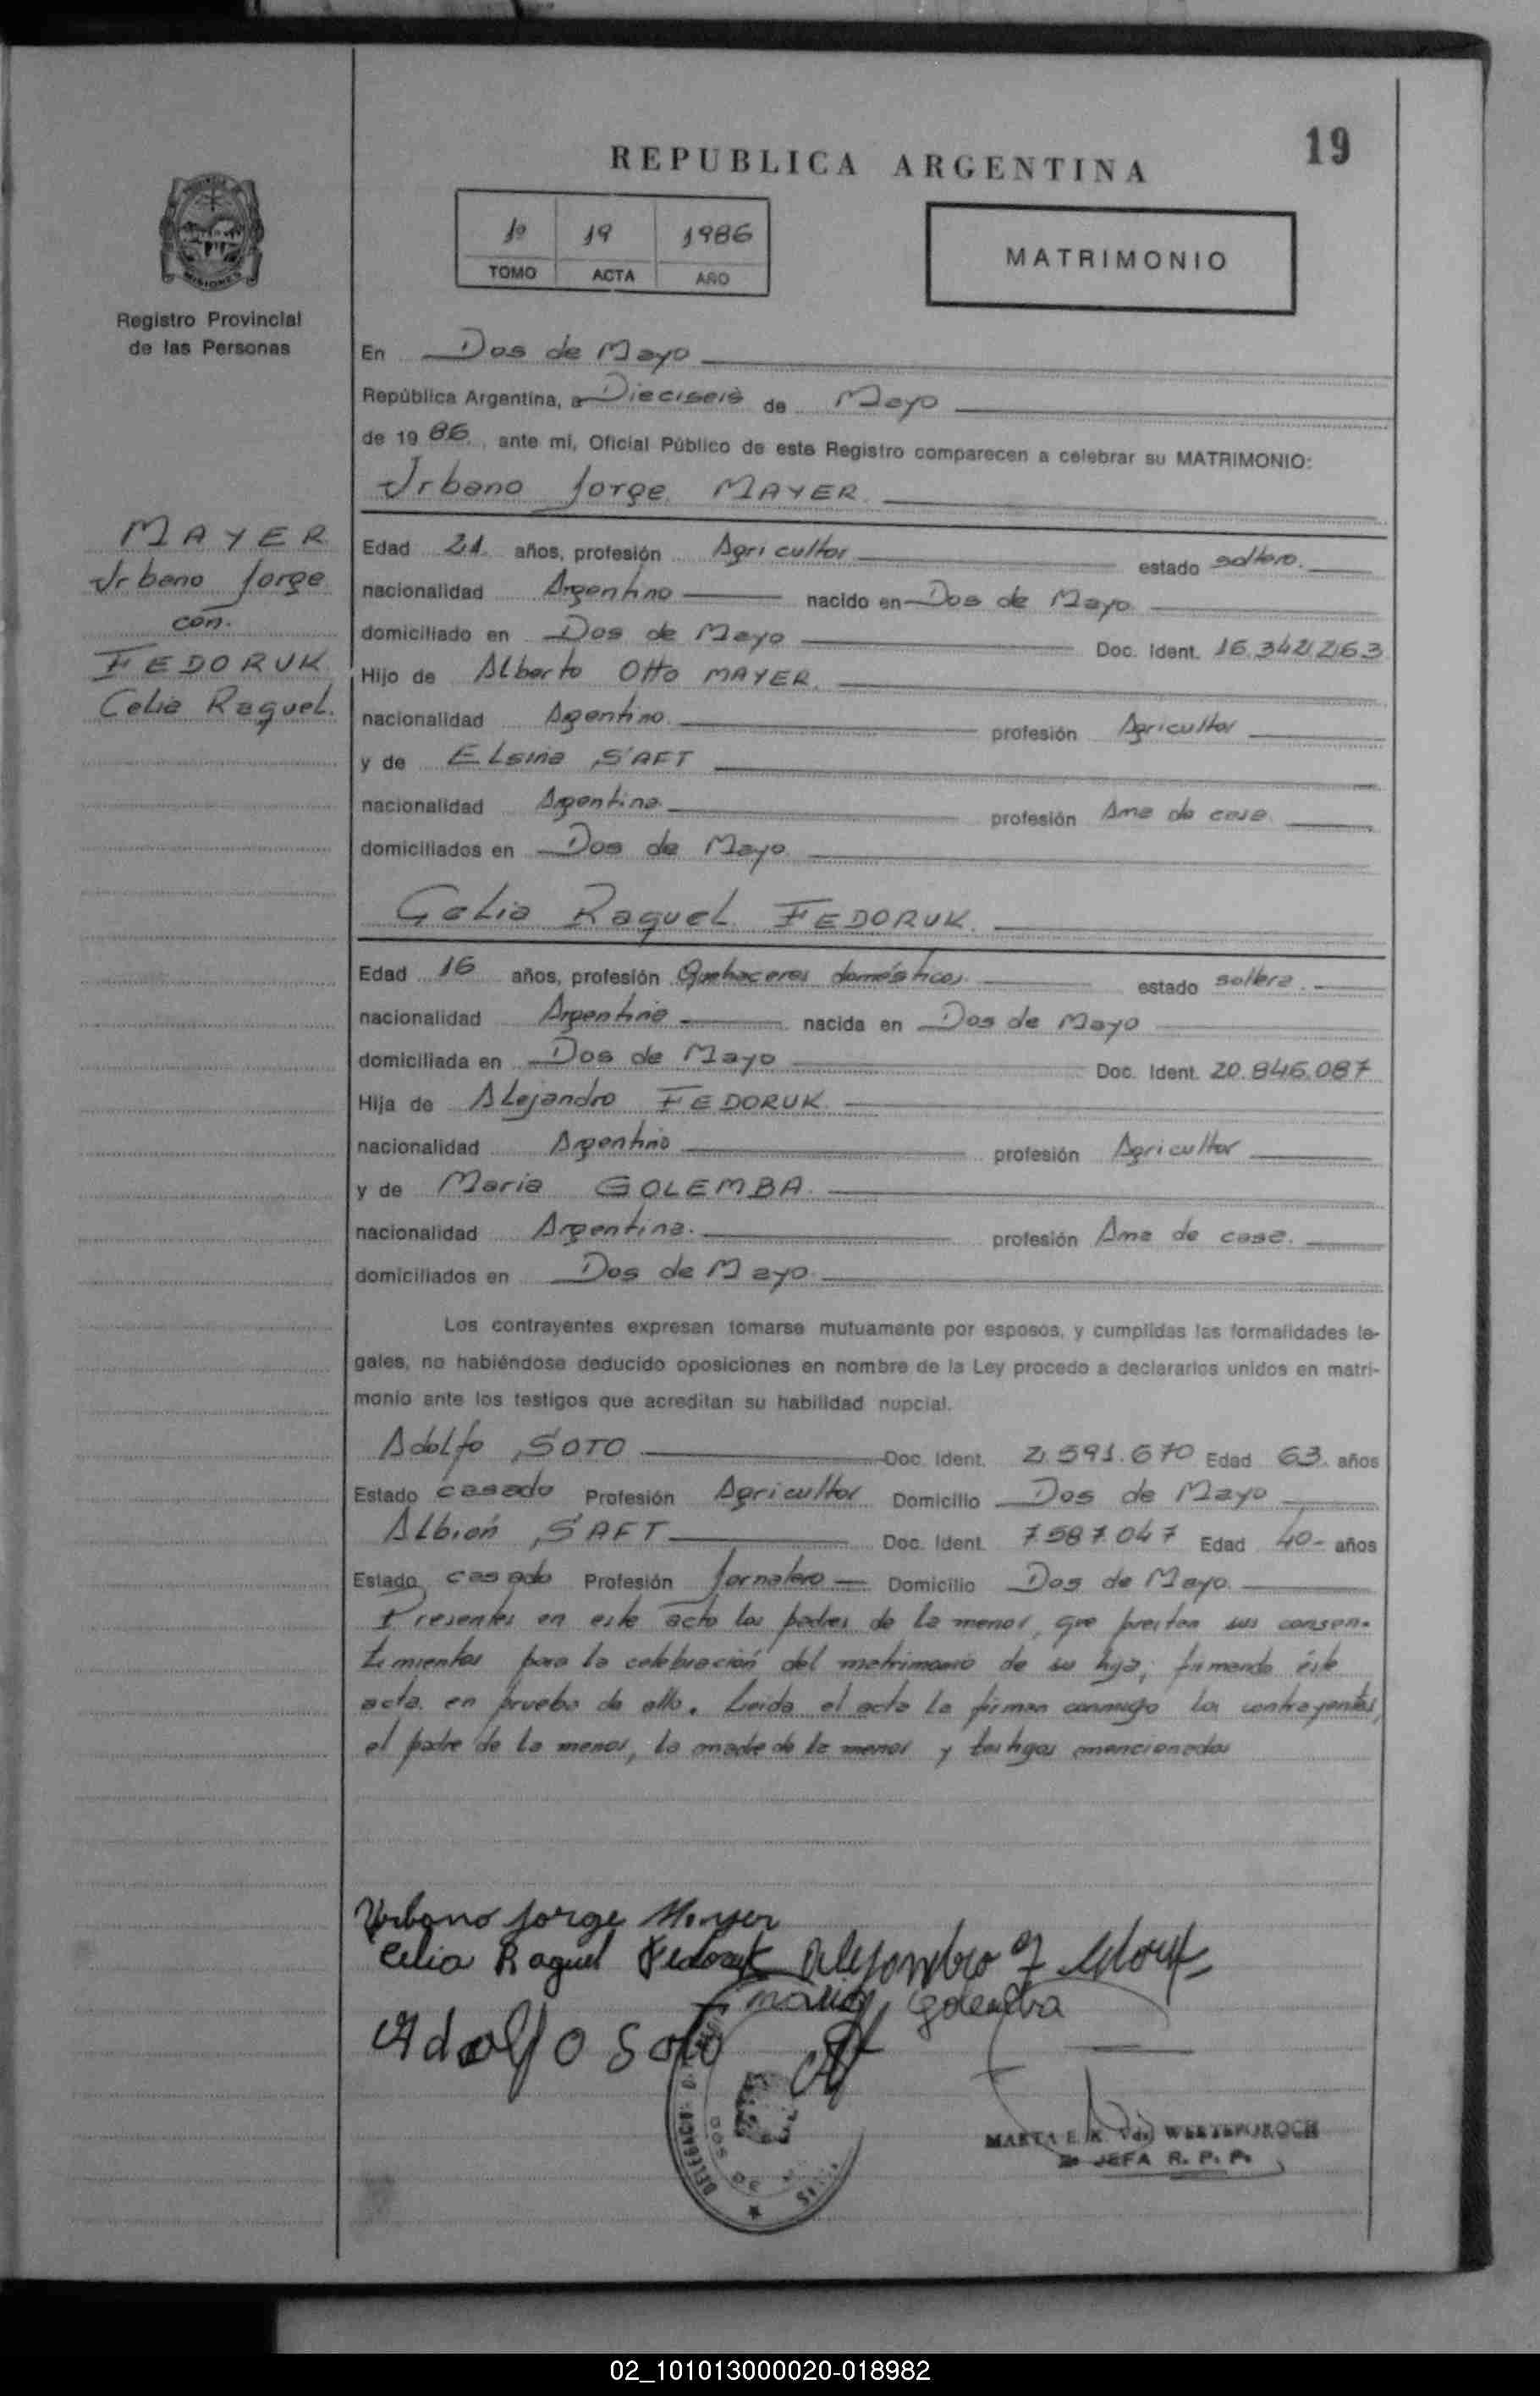 19
REPUBLICA ARGENTINA
1º 19 1986
TOMO ACTA AÑO
MATRIMONIO
MISIONES
Registro Provincial
de las Personas
En Dos de Mayo
República Argentina, a Dieciseis de Mayo
de 1986, ante mi, Oficial Público de este Registro comparecen a celebrar su MATRIMONIO:
Urbano Jorge MAYER
MAYER
Urbano Jorge
con.
FEDORUK
Celia Raquel.
Edad 21 años, profesión Agricultor estado soltero.
nacionalidad Argentino nacido en Dos de Mayo
domiciliado en Dos de Mayo Doc. Ident. 16.342.263
Hijo de Alberto Otto MAYER.
nacionalidad Agentino. profesión Agricultor
y de Elsina SAFT
nacionalidad Argentina. profesión Ama de casa.
domiciliados en Dos de Mayo.
Celia Raquel FEDORUK.
Edad 16 años, profesión Quehaceres domésticos. estado soltera.
nacionalidad Argentina nacida en Dos de Mayo
domiciliada en Dos de Mayo Doc. Ident. 20.846.087
Hija de Alejandro FEDORUK.
nacionalidad Argentino profesión Agricultor
y de Maria GOLEMBA.
nacionalidad Argentina. profesión Ama de casa.
domiciliados en Dos de Mayo.
Los contrayentes expresan tomarse mutuamente por esposos, y cumplidas las formalidades le-
gales, no habiéndose deducido oposiciones en nombre de la Ley procedo a declararlos unidos en matri-
monio ante los testigos que acreditan su habilidad nupcial.
Adolfo SOTO Doc. Ident. 2.591.670 Edad 63. años
Estado casado Profesión Agricultor Domicilio Dos de Mayo
Albión SAFT Doc. Ident. 7.587.047 Edad 40- años
Estado casado Profesión Jornalero Domicilio Dos de Mayo.
Presentes en este acto los padres de la menor, que prestan sus consen-
timientos para la celebración del matrimonio de su hija; firmando éste
acta en prueba de ello. Leida el acta la firman conmigo los contrayentes,
el padre de la menor, la madre de la menor y testigos mencionados
Urbano Jorge Mayer
Celia Raquel Fedoruk Alejandro
Maria Golemba
Adolfo Soto
DELEGACION
MARTA E. K. WESTERHOROCH
JEFA R. P. P.
02_101013000020-018982